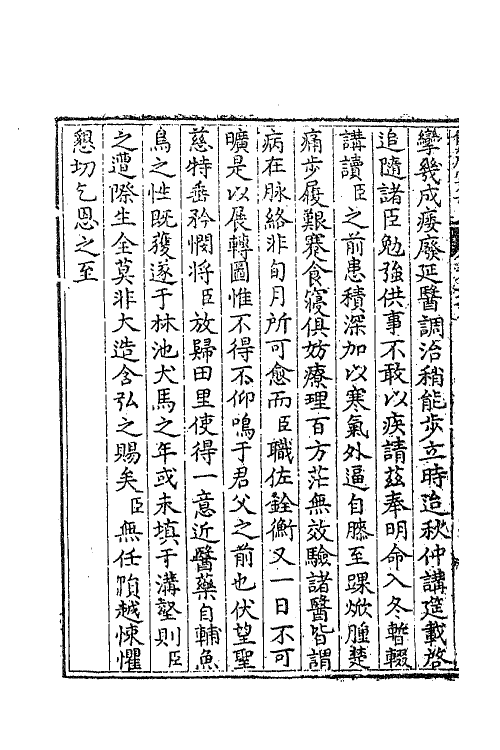 攣幾成痿廢延醫調治稍能步立時迨秋仲講筵載啓
追隨諸臣勉強供事不敢以疾請茲奉明命入冬暫輟
講讀臣之前患積深加以寒氣外逼自膝至踝焮腫楚
痛步履艱蹇食寢俱妨療理百方茫無效驗諸醫皆謂
病在脉絡非旬月所可愈而臣職佐銓衡又一日不可
曠是以展轉圖惟不得不仰鳴于君父之前也伏望聖
慈特垂矜憫將臣放歸田里使得一意近醫藥自輔魚
鳥之性旣獲遂于林池犬馬之年或未填于溝壑則臣
之遭際生全莫非大造含弘之賜矣臣無任隕越悚懼
懇切乞恩之至